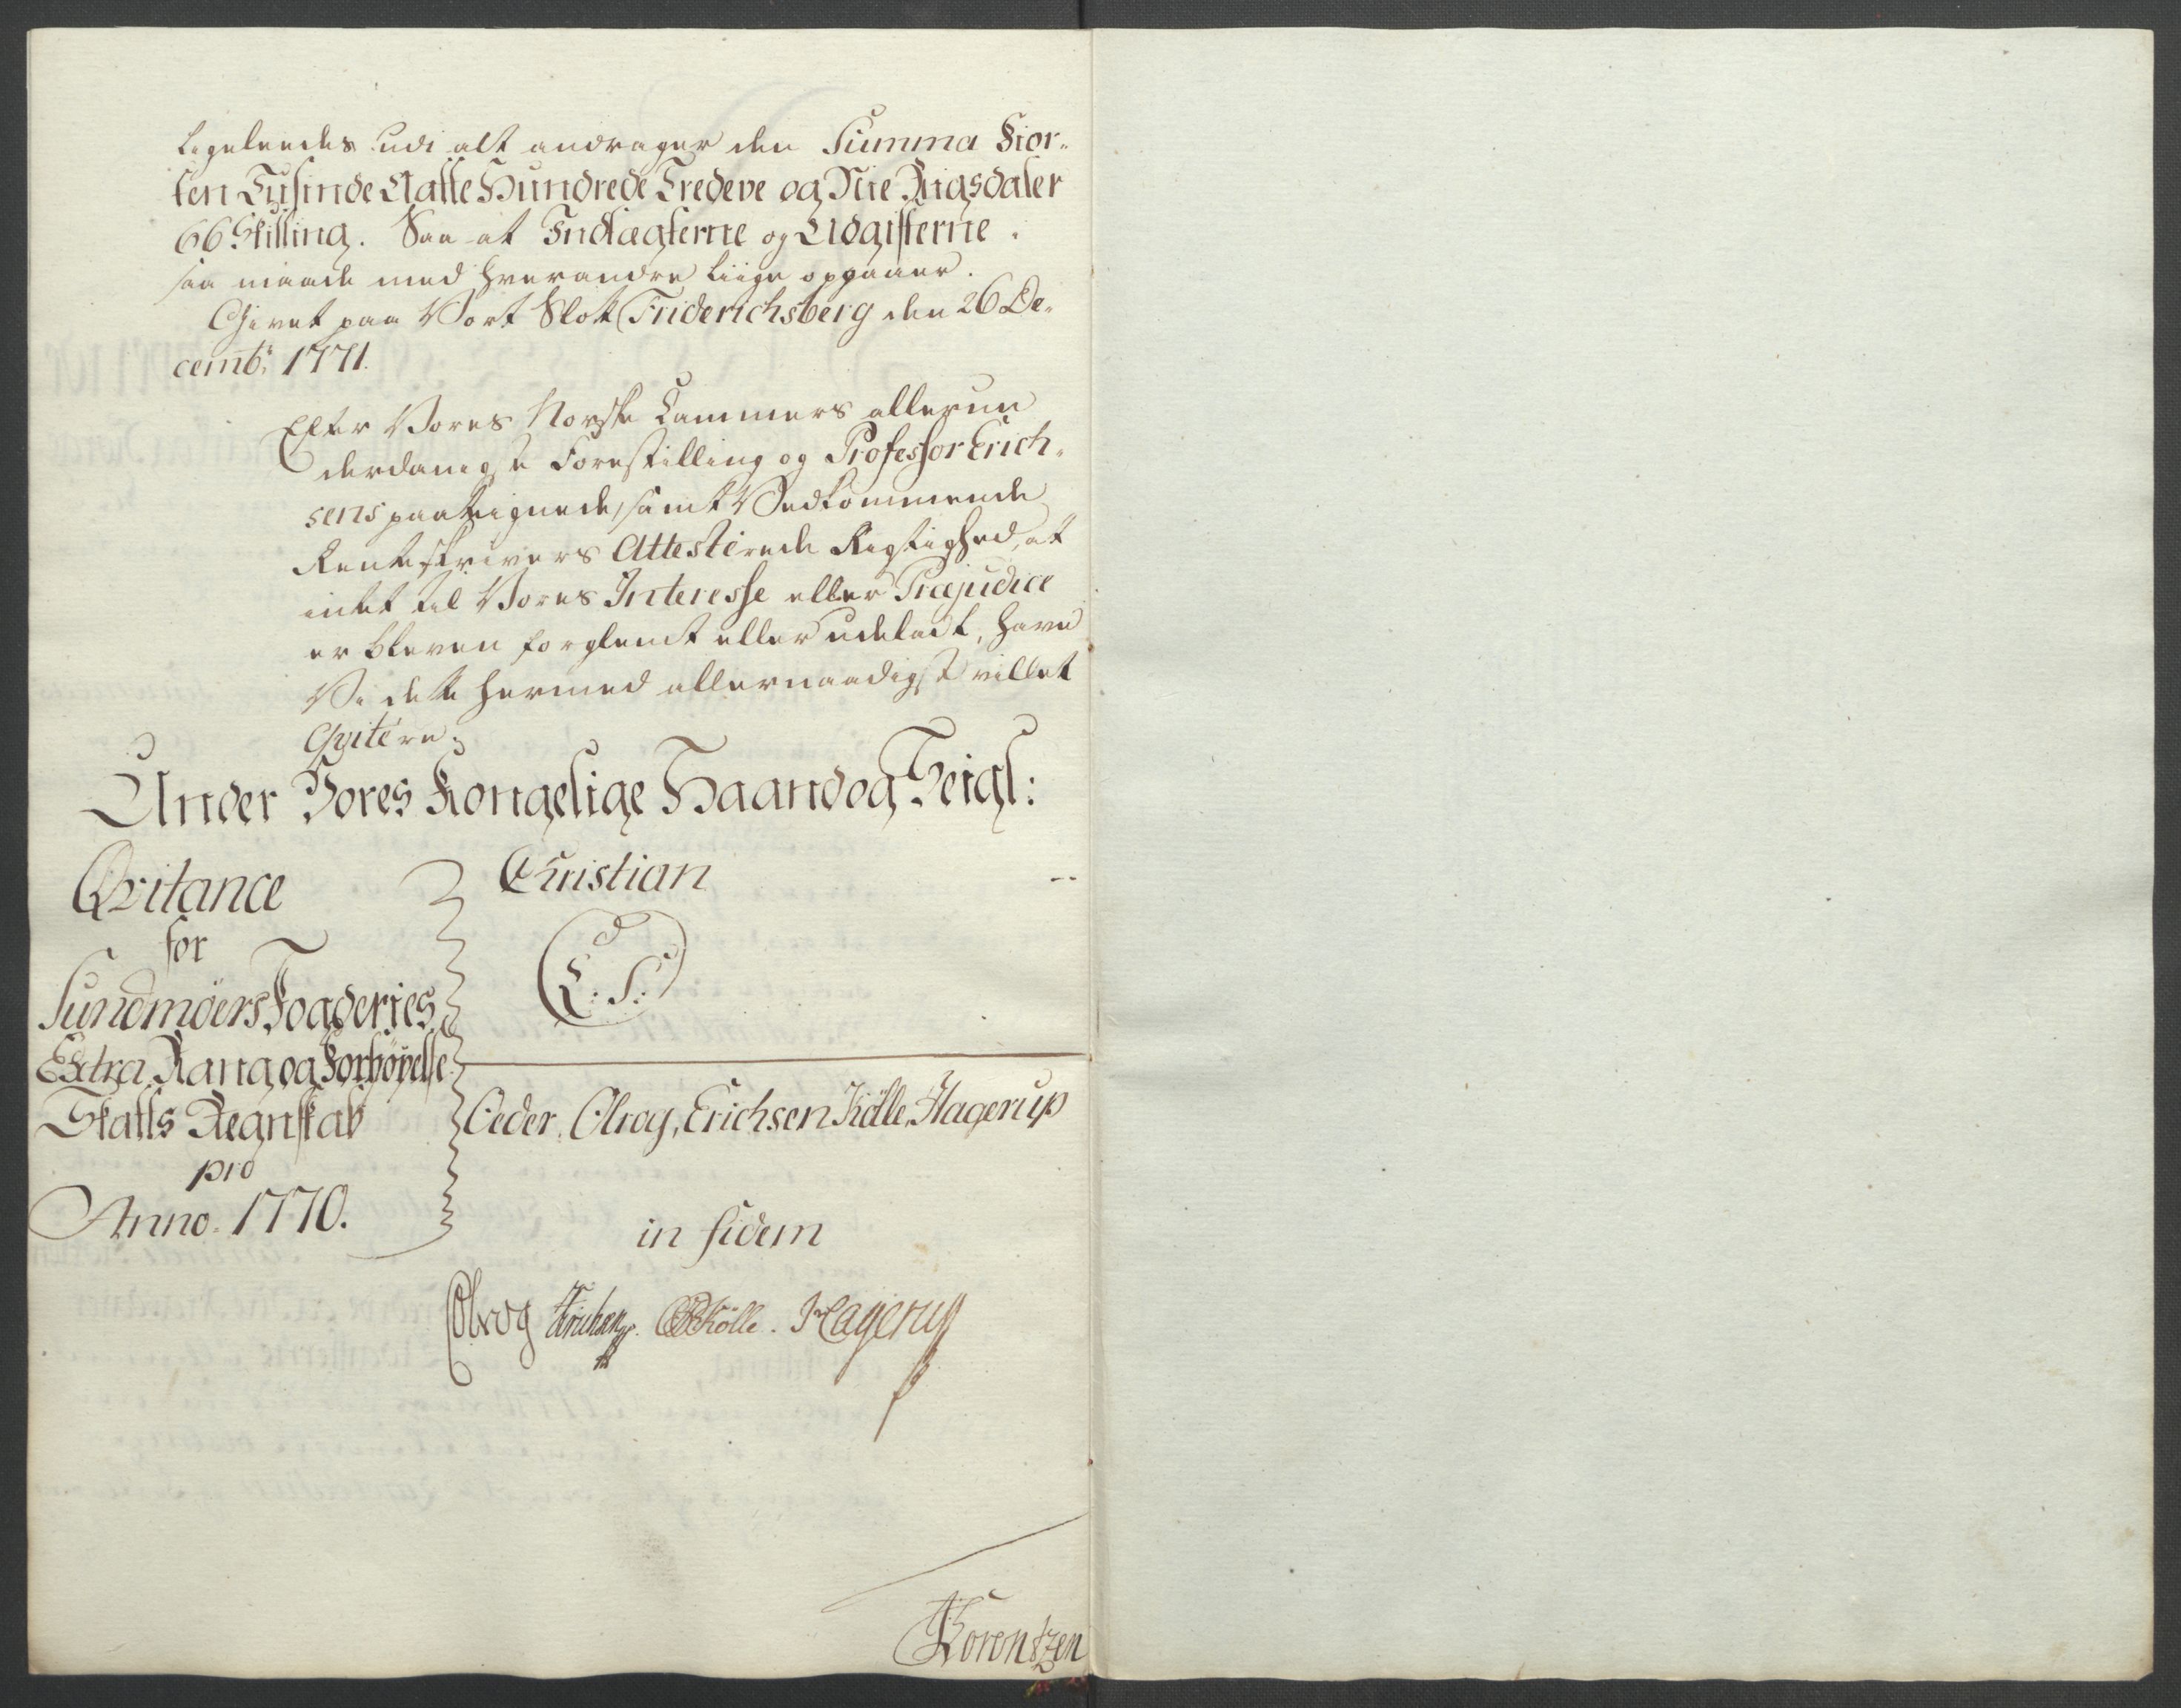 ligeleedes udi alt andrager den Summa Fior-
ten Tusinde Aatte Hundrede Tredeve og Nie Rigsdaler
66 Skilling. Saa at Indtægterne og Udgifterne
saa maade med hverandre liige opgaaer.
Givet paa Vort Slot Friderichsberg den 26 De-
cembr: 1771.
Efter Vores Norske Cammers allerun
derdanigste Forestilling og Professor Erich-
sens paateignede, samt Vedkommende
Renteskrivers Attesterede Rigtighed, at
intet til Vores Interesse eller Præjudice
er bleven forglemt eller udeladt, have
Vi dette hermed allernaadigst villet
Qvitere;
Under Vores Kongelige Haand og Seigl:
Qvitance
for
Sundmöers Fogderies
Extra Rang og Forhøyelse
Skatts Regnskab
pro
Anno. 1770.
Christian
L: S:
Oeder, Olrog, Erichsen Kölle, Hagerup
in fidem
Olrog Erichsen. Kölle. Hagerup
Lorentzen